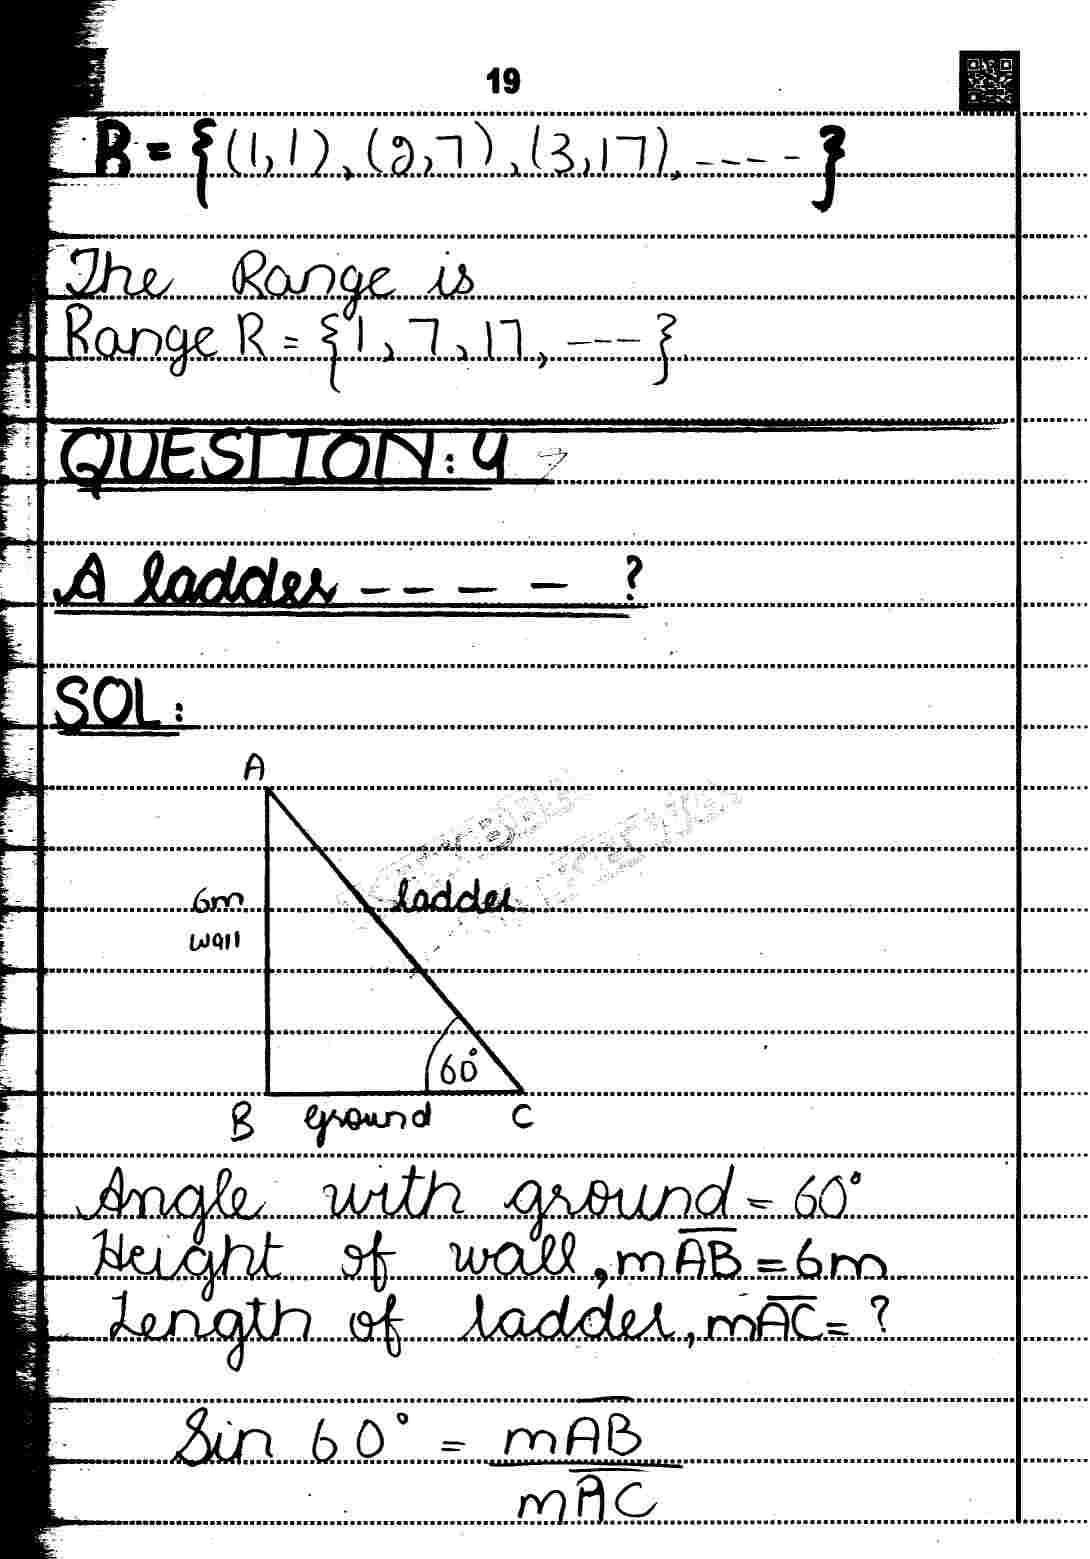 19
R = {(1,1),(2,7),(3,17),----}
The Range is
Range R = {1,7,17,---}
QUESTION:4
A ladder ---- ?
SOL:
A
6m
ladder
wall
60°
B ground C
Angle with ground = 60°
Height of wall, mAB̅ = 6m
Length of ladder, mAC̅ = ?
Sin 60° = mAB̅
mAC̅